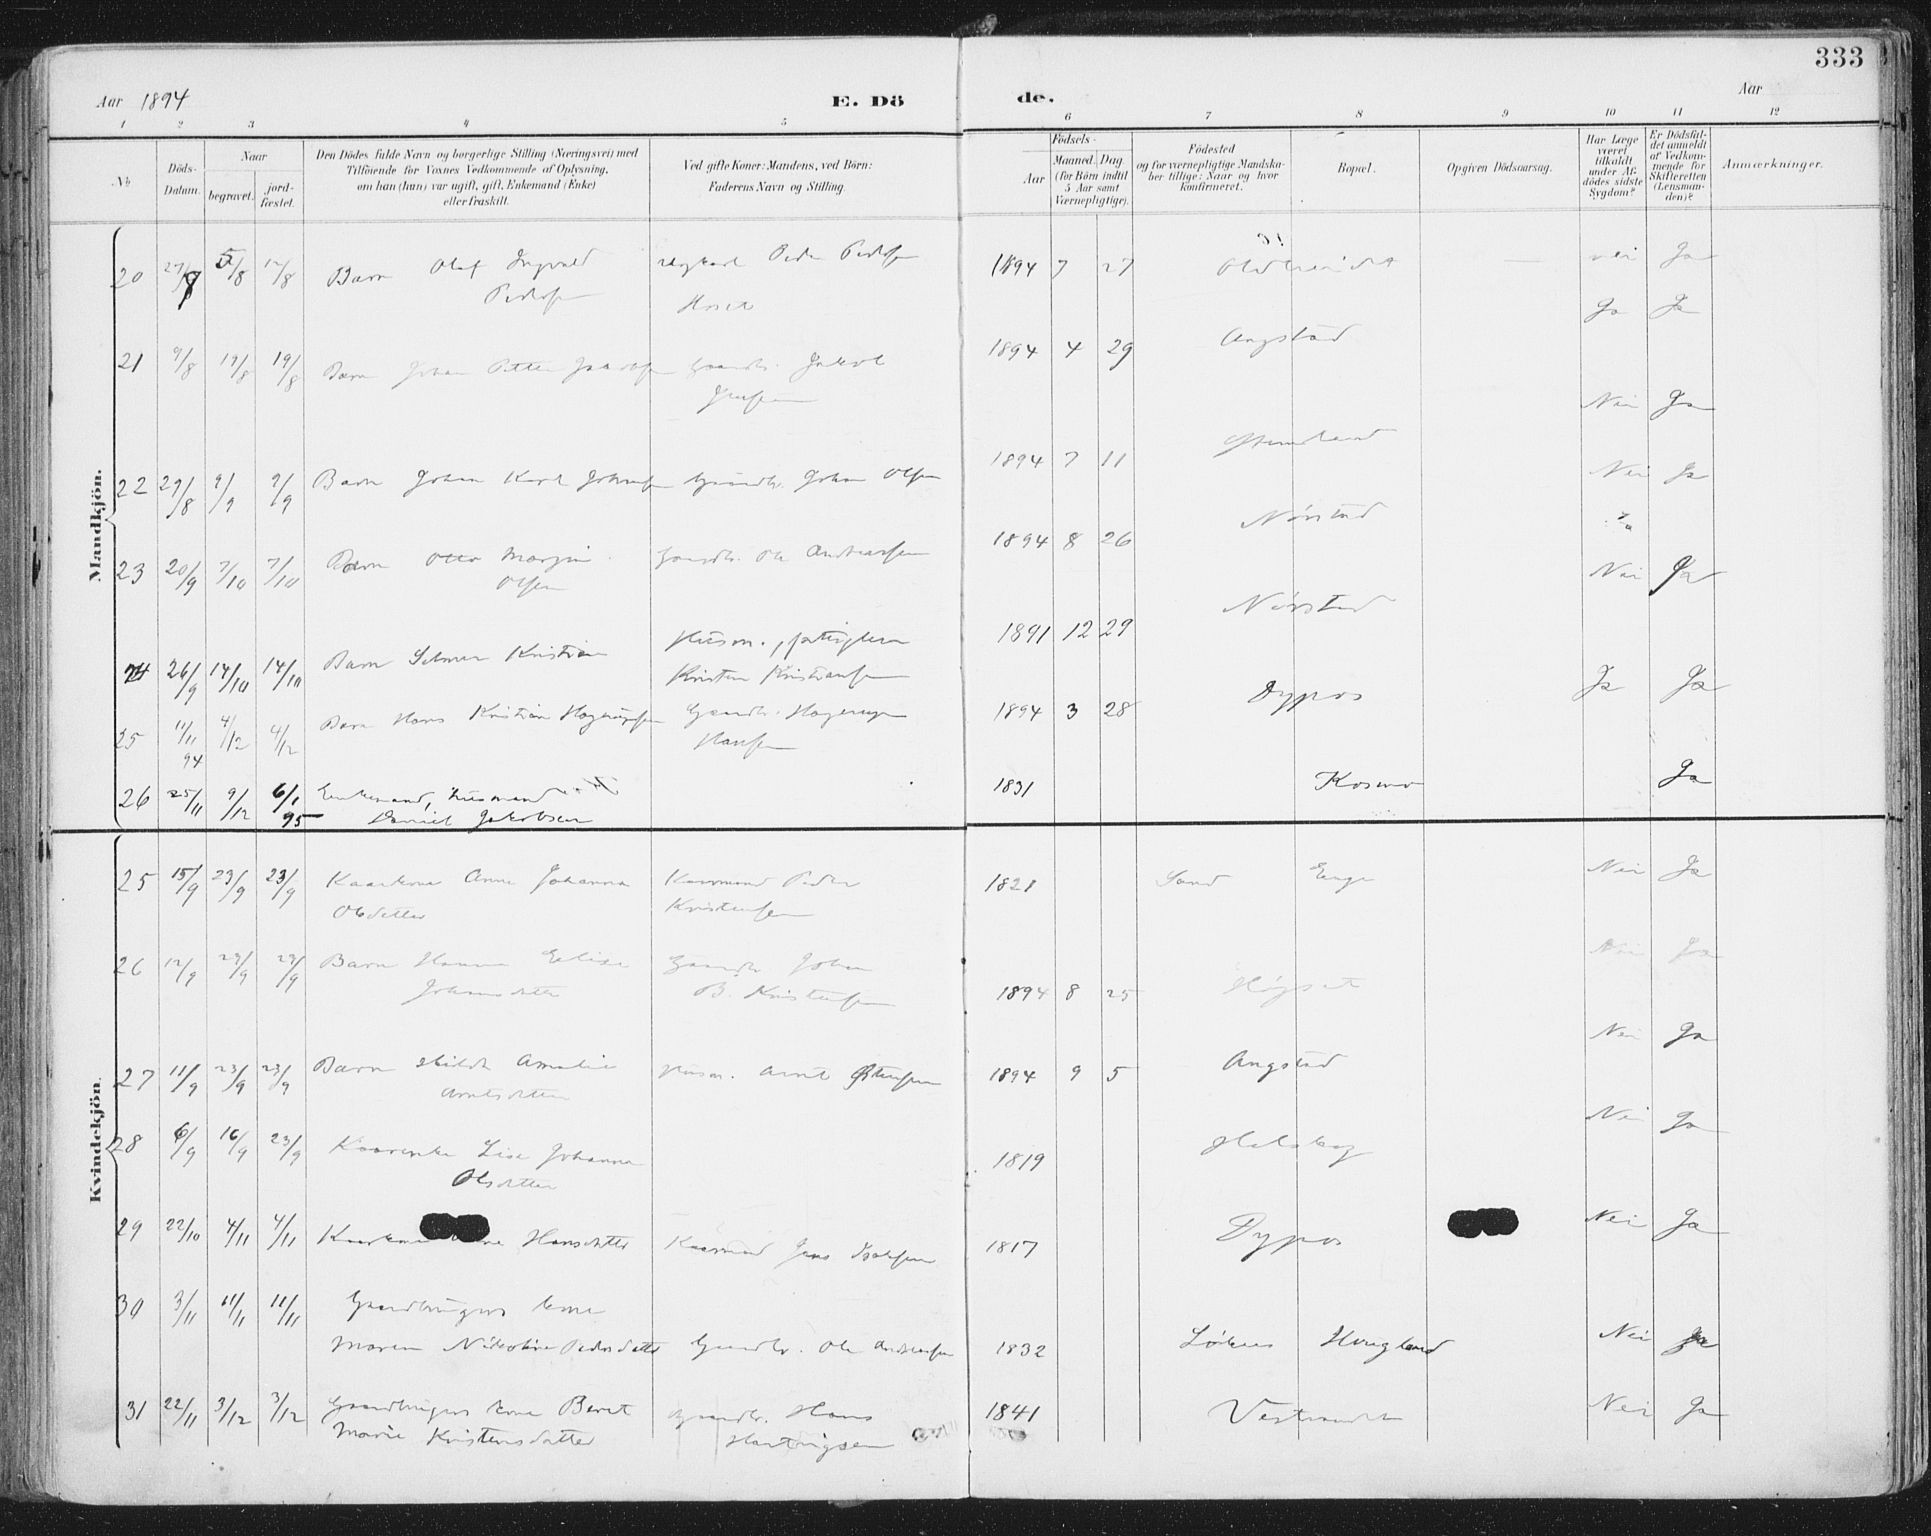 333
Aar 1894
E. Dö
de.
Aar
1 2 3 4 5 6 7 8 9 10 11 12
No.
Döds-Datum.
Naar
begravet.
jord-fæstet.
Den Dödes fulde Navn og borgerlige Stilling (Næringsvei) med
Tilföiende for Voxnes Vedkommende af Oplysning,
om han (hun) var ugift, gift, Enkemand (Enke)
eller fraskilt.
Ved gifte Koner: Mandens, ved Börn:
Faderens Navn og Stilling.
Födsels-
Aar
Maaned. Dag
(for Börn indtil
5 Aar samt
Værnepligtige).
Födested
og for værnepligtige Mandska-
ber tillige: Naar og hvor
konfirmeret.
Bopæl.
Opgiven Dödsaarsag.
Har Læge
været
tilkaldt
under Af-
dödes sidste
Sygdom?
Er Dödsfal-
det anmeldt
af Vedkom-
mende for
Skifteretten
(Lensman-
den)?
Anmærkninger.
Mandkjön.
20 27/7 5/8 12/8 Barn Olaf Ingvald Pedersen Peder Pedersen 1894 7 27 nei Ja
21 9/8 19/8 19/8 Barn Johan Petter Jakobsen Gaardbr. Jakob Jensen 1894 4 29 Angstad Ja Ja
22 29/8 9/9 9/9 Barn Johan Karl Johansen Gaardbr. Johan Olsen 1894 7 11 Nei Ja
23 20/9 7/10 7/10 Barn Otto Olsen Gaardbr. Ole Andreassen 1894 8 26 Nörstad Nei Ja
24 26/9 14/10 14/10 Barn Selmer Kristian Husm., Kristen Kristiansen 1891 12 29 Nörstad Nei Ja
25 11/11 94 4/12 4/12 Barn Hans Kristian Hagerupsen Gaardbr. Hagerup Hansen 1894 3 28 Dypos Ja Ja
26 25/11 9/12 6/1 95 Enkemand, Husmand Daniel Jakobsen 1831 Kosmo Ja
Kvindekjön.
25 15/9 23/9 23/9 Kaarkone Anne Johanna Olsdatter Kaarmand Peder Kristensen 1821 Sand Enge Nei Ja
26 12/9 23/9 23/9 Barn Hanna Elise Johansdatter Gaardbr. Johan B. Kristensen 1894 8 25 Högset Nei Ja
27 11/9 23/9 23/9 Barn Hilda Amalie Arntsdatter Husm. Arnt 1894 9 5 Angstad Nei Ja
28 6/9 16/9 23/9 Kaarenke Lise Johanna Olsdatter 1819 Nei Ja
29 22/10 4/11 4/11 Kaarkone Hansdatter Kaarmand Jens 1817 Dypos Nei Ja
30 3/11 11/11 11/11 Gaardbrugers kone
Maren Nikoline Pedersdatter Gaardbr. Ole Andreassen 1832 Haugland Nei Ja
31 22/11 3/12 3/12 Gaardbrugers kone Beret Marie Kristensdatter Gaardbr. Hans Hartvigsen 1841 Nei Ja